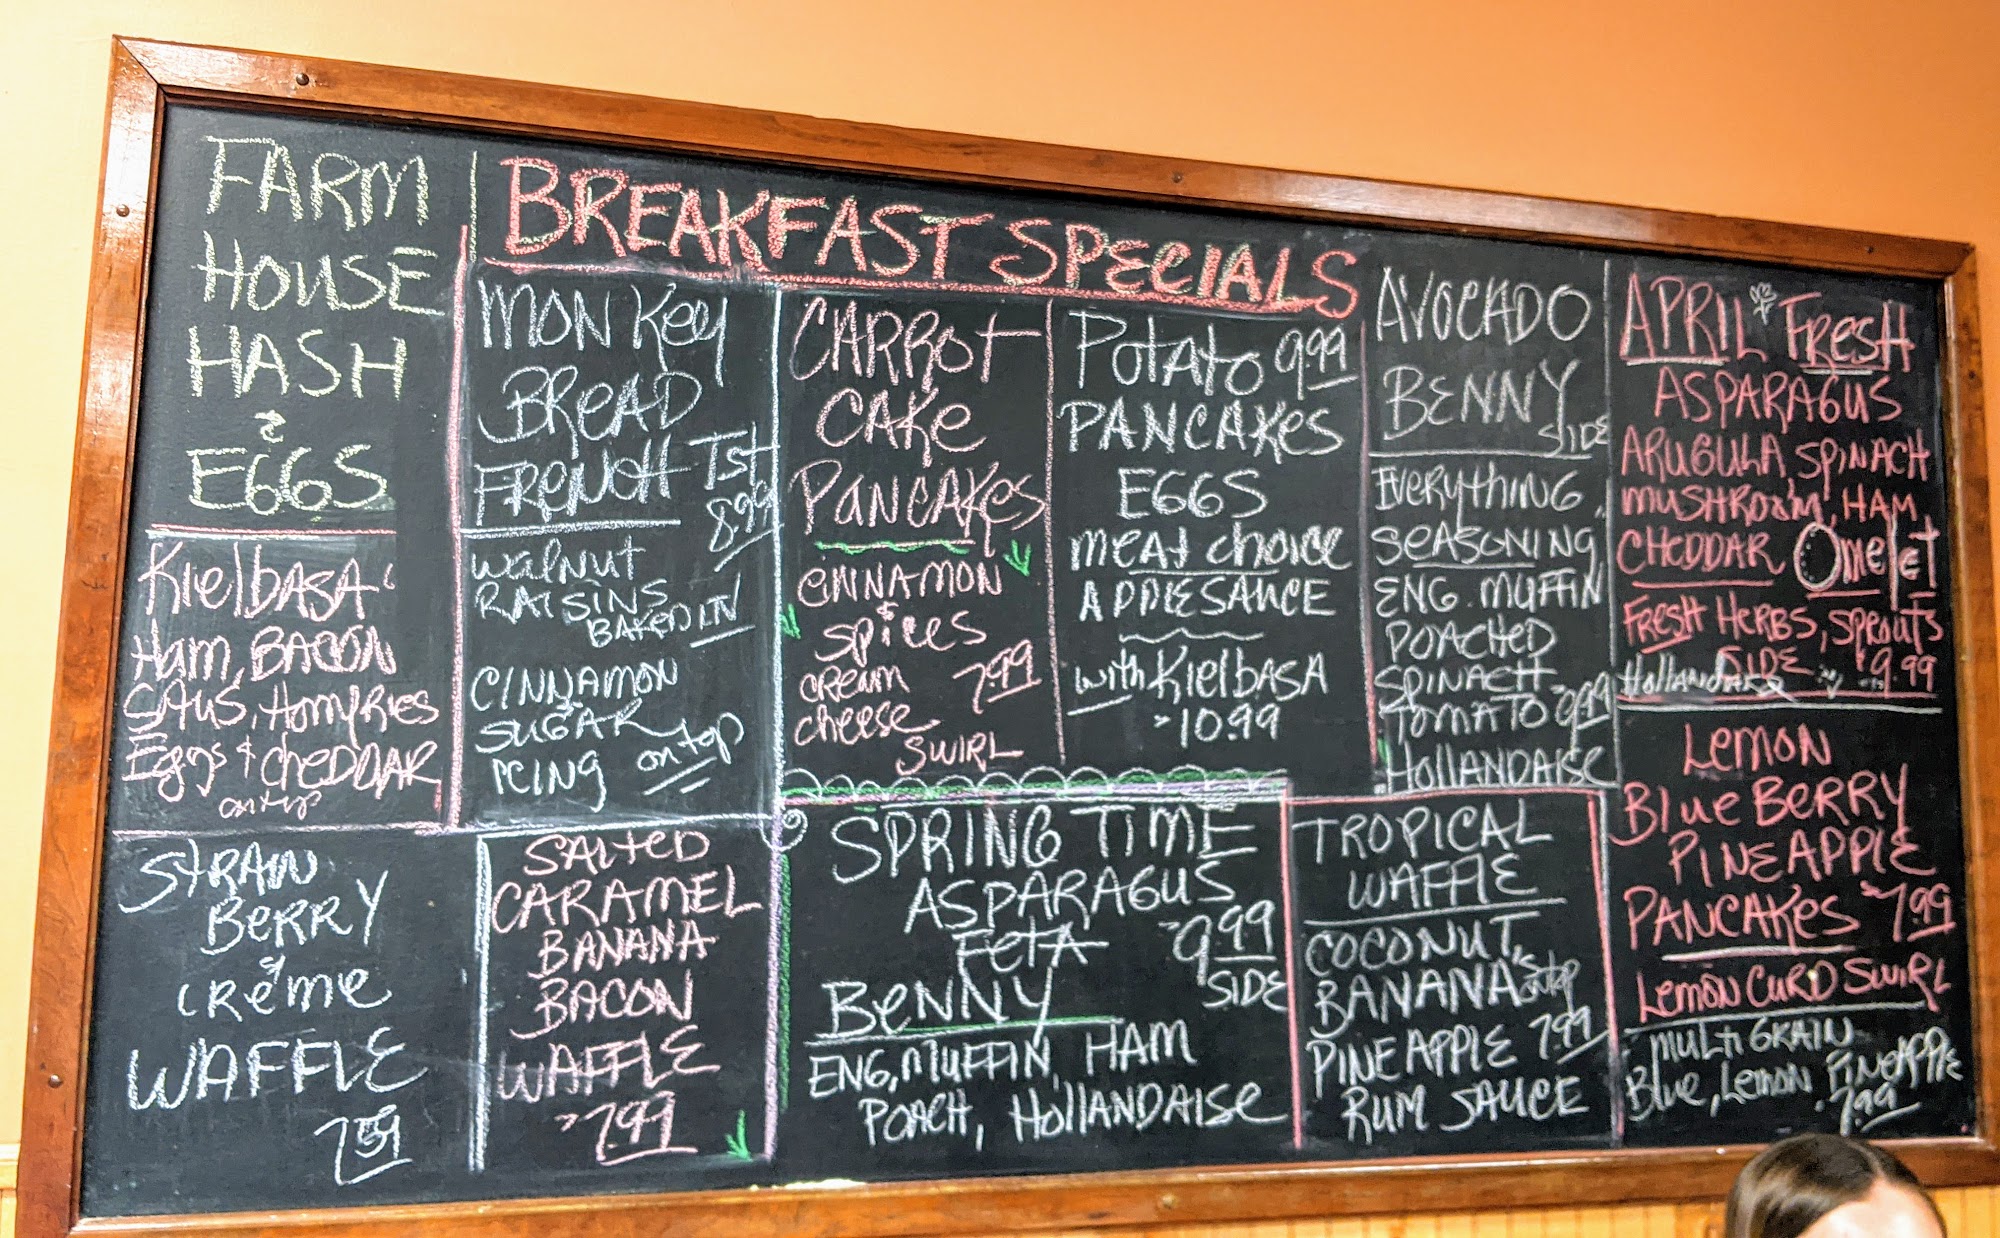 BREAKFAST SPECIALS
FARM
HOUSE
HASH
&
EGGS
KielBASA
Ham, BACON
SAUS, HomFRies
Eggs & CHEDDAR
on top
MONKey
BREAD
FRENCH TST
8.99
Walnut
RAISINS
BAKED IN
CINNAMON
SUGAR
ICING on top
CARROt
CAKe
PANCAKes
CINNAMON
&
Spices
cream 7.99
cheese
SWIRL
Potato 9.99
PANCAKES
EGGS
meat choice
APPLESAUCE
with KielBASA
10.99
AVOCADO
BENNY
SIDE
EVERYTHING
SEASONING
ENG. MUFFIN
POACHED
SPINACH
TOMATO 9.99
HollANDAISE
APRIL FResH
ASPARAGUS
ARUGULA SPINACH
MUSHROOM, HAM
CHEDDAR OmeLeT
FResH HERBS, SPROUTS
SIDE 9.99
HollANDAISE
STRAW
BeRRY
&
CRème
WAFFLE
7.59
SALTED
CARAMEL
BANANA
BACON
WAFFLE
7.99
SPRING TIME
ASPARAGUS
FetA 9.99
SIDE
BeNNY
ENG, MUFFIN, HAM
POACH, HollANDAISE
TROPICAL
WAFFLE
COCONUT,
BANANAS on top
PINEAPPLE 7.99
RUM SAUCE
Lemon
BlueBeRRY
PINEAPPLE
PANCAKES 7.99
Lemon CURD SWIRL
MULTIGRAIN
Blue, Lemon, PINEAPPLE
7.99